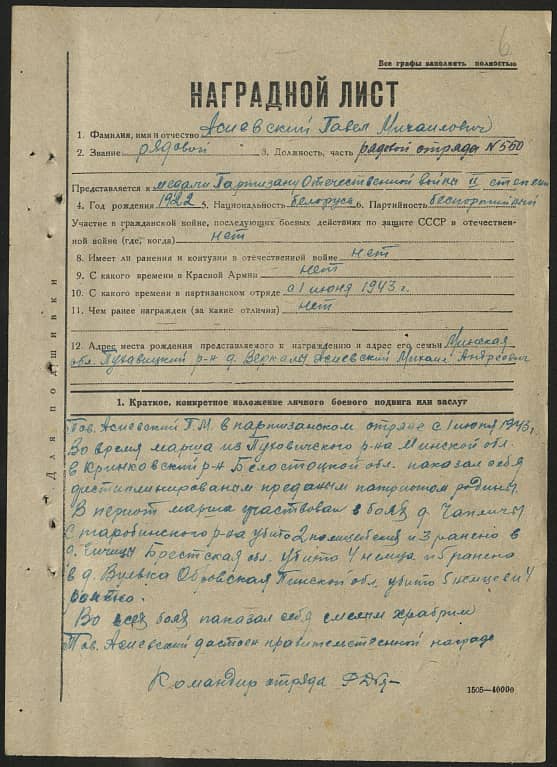 6
Все графы заполнять полностью
НАГРАДНОЙ ЛИСТ
1. Фамилия, имя и отчество Асиевский Павел Михаилович
2. Звание рядовой 3. Должность, часть рядовой отряда N 550
Представляется к медали Партизану Отечественной войны II степени
4. Год рождения 1922 5. Национальность белорус 6. Партийность беспортийный
Участие в гражданской войне, последующих боевых действиях по защите СССР в отечествен-
ной войне (где, когда) нет
8. Имеет ли ранения и контузии в отечественной войне нет
9. С какого времени в Красной Армии нет
10. С какого времени в партизанском отряде с 1 июня 1943 г.
11. Чем ранее награжден (за какие отличия) нет
12. Адрес места рождения представляемого к награждению и адрес его семьи Минская
обл. Пуховицкий р-н д. Веркалы Асиевский Михаил Андреевич
Для подшивки
1. Краткое, конкретное изложение личного боевого подвига или заслуг
Тов. Асиевский П.М. в партизанском отряде с 1 июня 1943 г.
Во время марша из Пуховичского р-на Минской обл.
в Кринковский р-н Белостоцкой обл. паказал себя
дистиплинированым преданым патриотом родины
В периот марша участвовал в боях д. Чапличы
Старобинского р-на убито 2 полицейския и 3 ранено в
д. Чичицы Брестская обл. убито 4 немца и 5 ранено
в д. Вулька Обровская Пинской обл. убито 5 немцев и 4
Во всех боях паказал себя смелым храбрим
Тов. Асиевский дастоен правительственной награде
Командир отряда
1505—40000